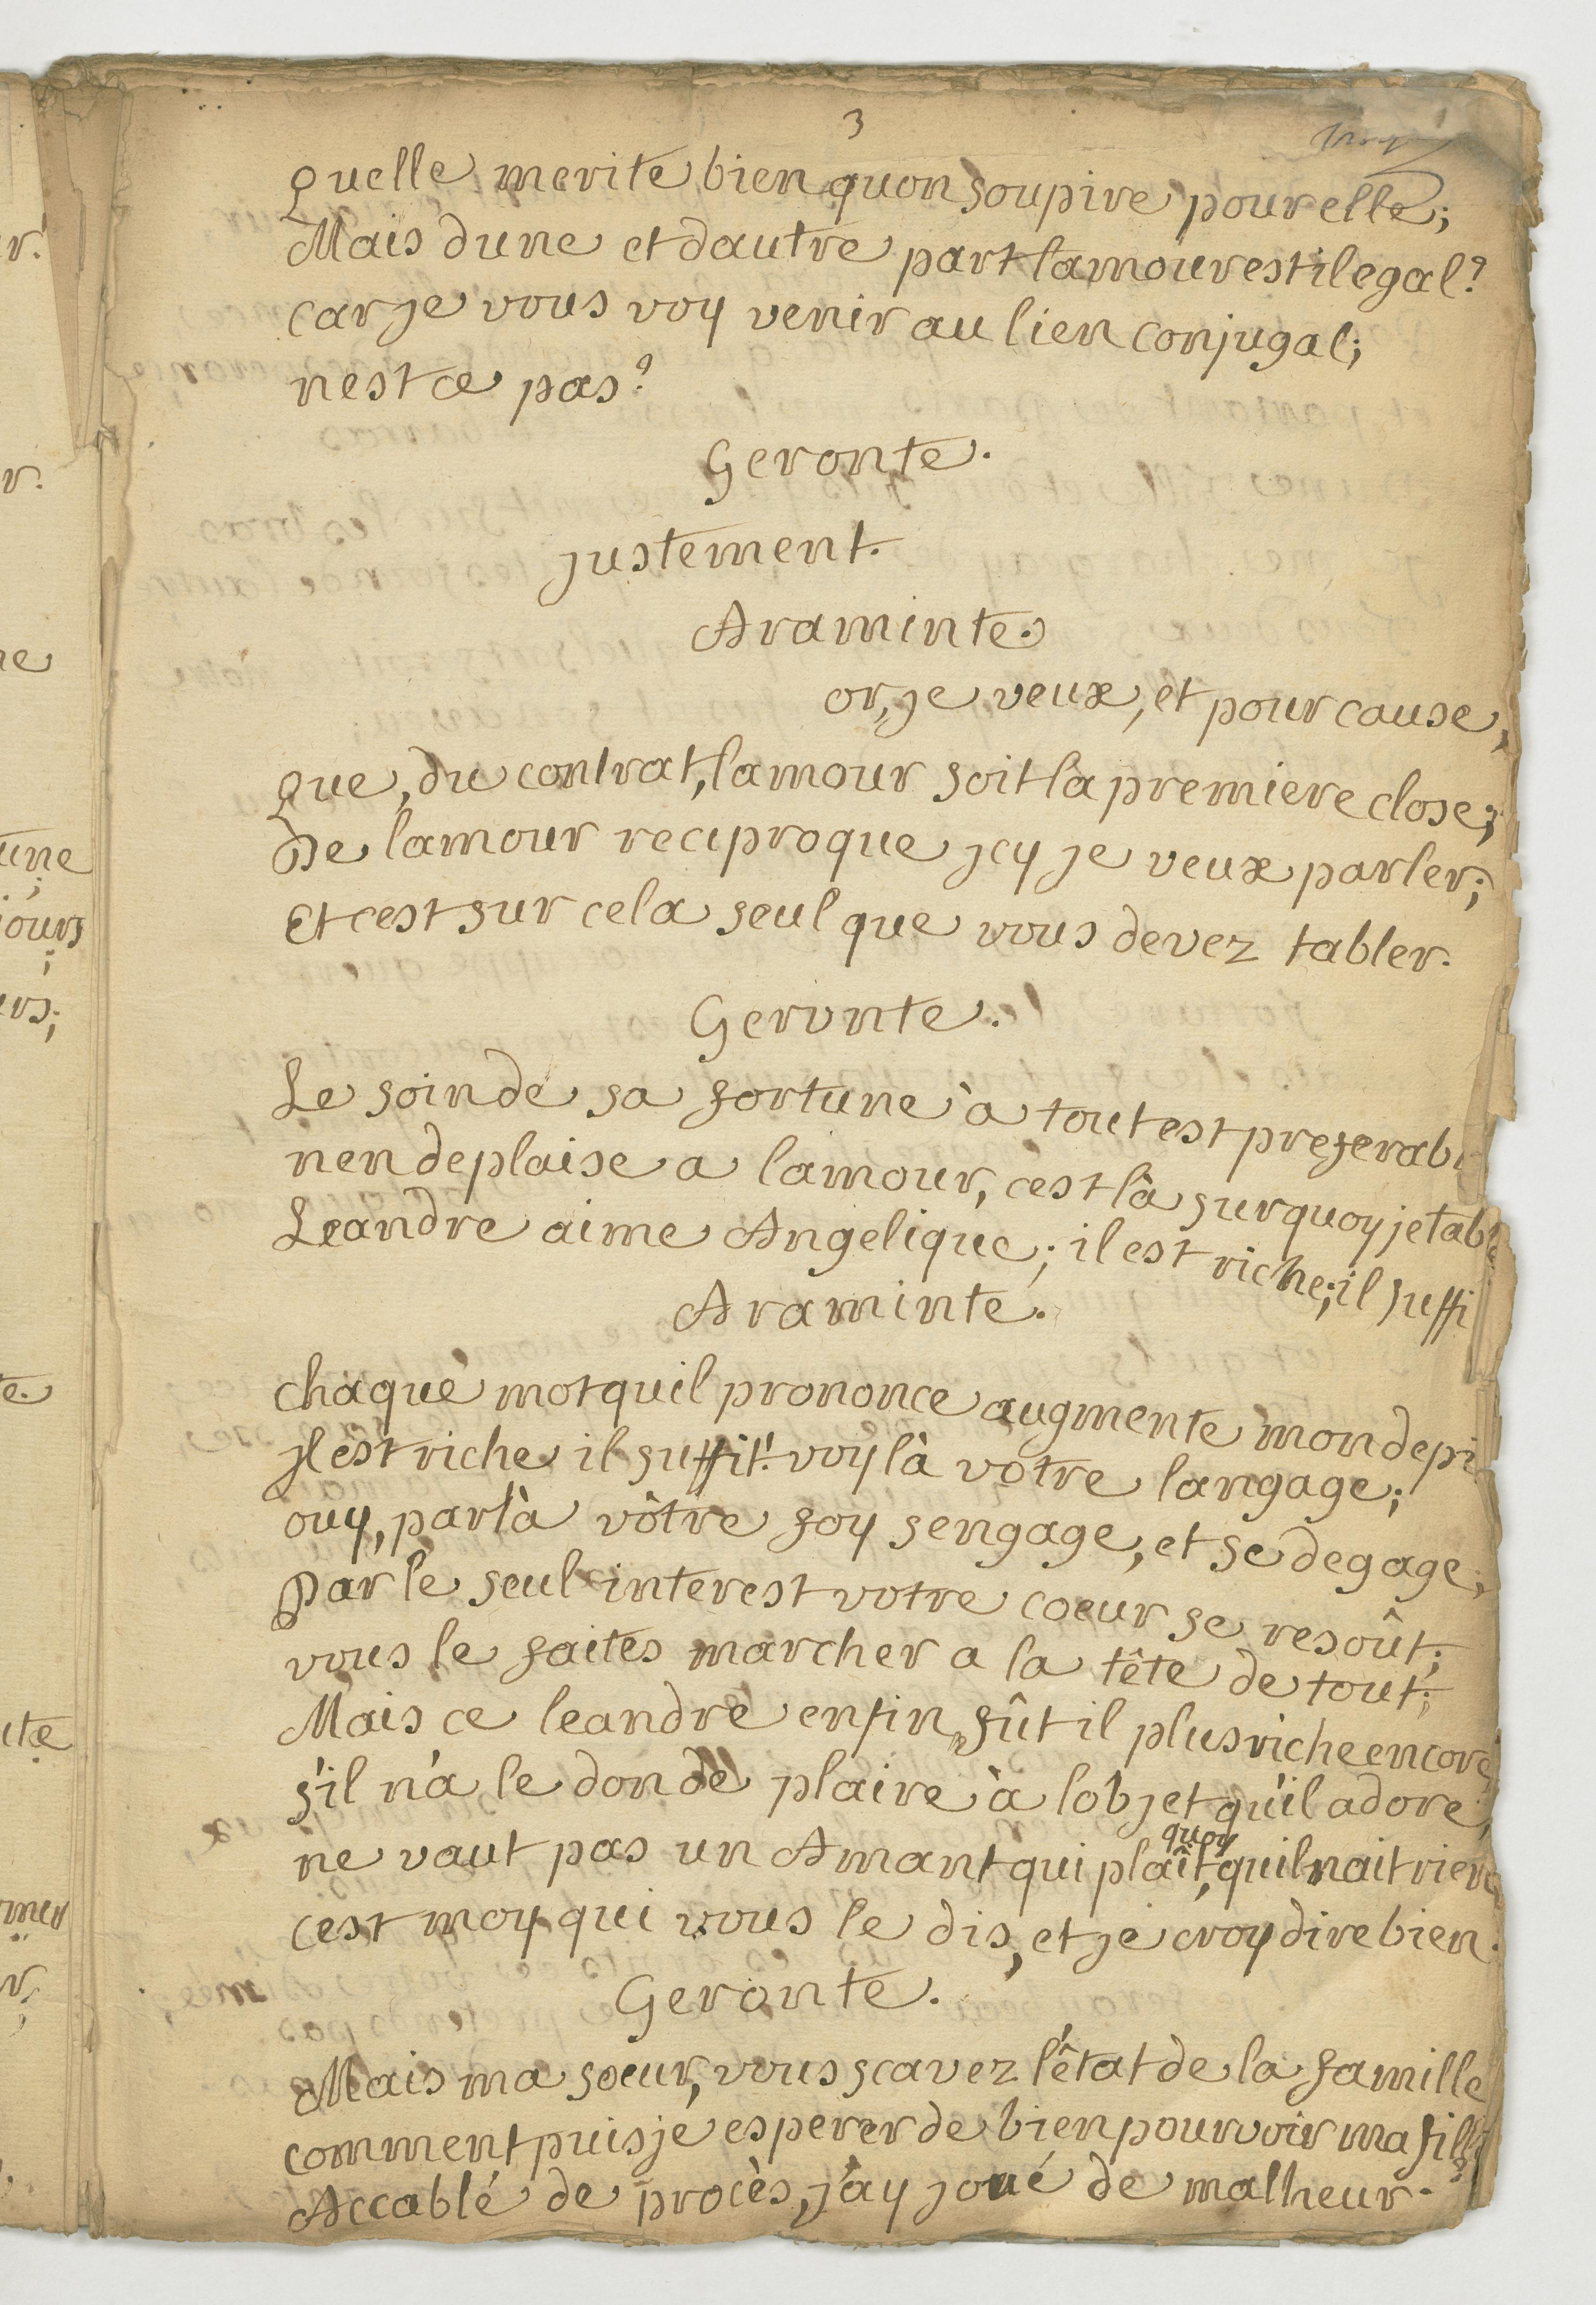 3
quelle merite bien quon soupire pour elle;
Mais dune et dautre part lamour est il egal?
car je vous voy venir au lien conjugal;
nest ce pas?
Geronte.
justement.
Araminte.
or, je veux, et pour cause,
que, du contrat, lamour soit la premiere close;
De lamour reciproque jcy je veux parler;
Et cest sur cela seul que vous devez tabler.
Geronte.
Le soin de sa fortune à tout est preferab
nen deplaise a lamour, cest là sur quoy je tabl
Leandre aime Angelique; il est riche; il suffi
Araminte.
chaque mot quil prononce augmente mon depi
jl est riche il suffit! voylà votre langage;
ouy, par là vôtre foy sengage, et se degage;
Par le seul interest votre coeur se resoût;
vous le faites marcher a la tête de tout;
Mais ce leandre enfin, fût il plus riche encore,
s'il n'a le don de plaire à lobjet qu'il adore,
ne vaut pas un Amant qui plaît, quoy quil nait rien
cest moy qui vous le dis, et je croy dire bien.
Geronte.
Mais ma soeur, vous scavez l'êtat de la famille
comment puis je esperer de bien pourvoir ma fille
Accablé de procès, j'ay joué de malheur.